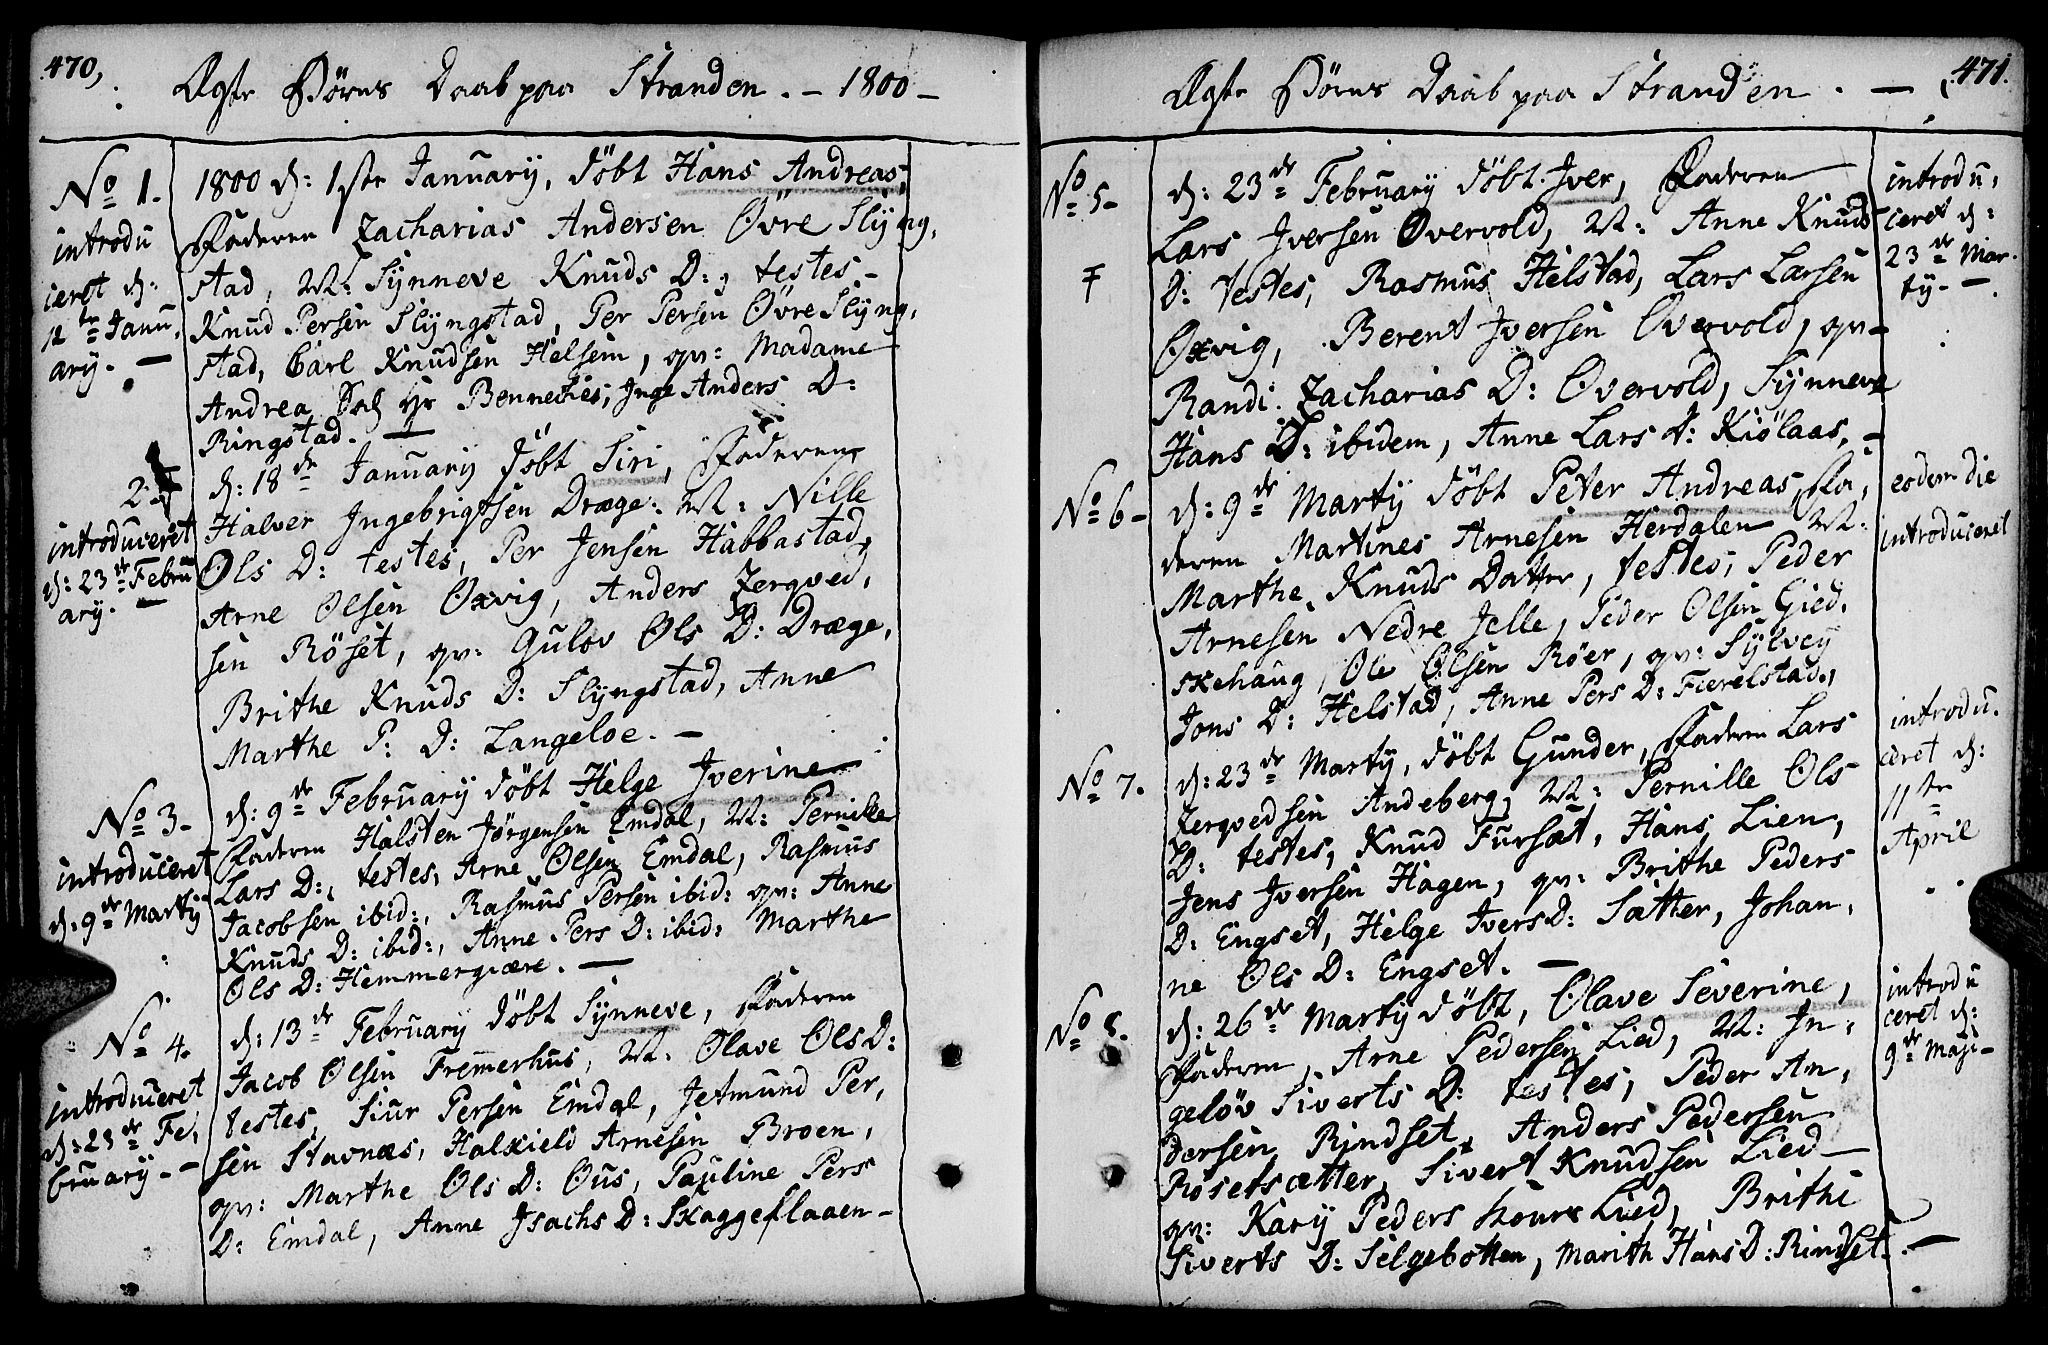 470,
Ægte Börns Daab paa Stranden. - 1800 -
No 1.
introdu
ceret d:
12te Janu,
ary. —
1800 d: 1ste January, döbt Hans Andreas,
Faderen Zacharias Andersen Övre Slÿng,
stad, M: Sÿnneve Knuds D:, testes -
Knud Persen Slÿngstad, Per Persen Övre Slÿng,
stad, Carl Knudsen Helsem, qv: Madame
Andrea Sal Hr Bennetzes, Inge Anders D:
Ringstad. —
2.
introduceret
d: 23de Febru
ary. —
d: 18de January döbt Siri, Faderen
Halver Ingebrigtsen Dræge: M: Nille
Ols D: testes, Per Jensen Habbastad,
Arne Olsen Oxvig, Anders Zerqved,
sen Röset, qv: Gulov Ols D: Dræge,
Brithe Knuds D: Slÿngstad, Anne
Marthe P: D: Langeloe. -
No 3-
introduceret
d. 9de Martÿ
d: 9de February döbt Helge Iverine
Faderen Halsten Jörgensen Emdal, M: Pernille
Lars D:, testes, Arne Olsen Emdal, Rasmus
Jacobsen ibid:, Rasmus Persen ibid: qv: Anne
Knuds D: ibid:, Anne Pers D: ibid: Marthe
Ols D: Hemmergiære. —
No 4.
introduceret
d: 23de Fe,
bruary. -
d: 13de February döbt Sÿnneve, Faderen
Jacob Olsen Fremmerhus, M: Olave Ols D:
testes, Siur Persen Emdal, Jetmund Per,
sen Stavnæs, Halkield Arnesen Broen,
qv: Marthe Ols D: Ous, Pauline Pers
D: Emdal, Anne Isachs D: Skaggeflaaen -
471.
Ægte Börns Daab paa Stranden. —
No 5-
d: 23de February döbt Iver, Faderen
Lars Iversen Overvold, M: Anne Knuds
D: testes, Rasmus Helstad, Lars Larsen
Oxvig, Berent Iversen Overvold, qv-
Randi Zacharias D: Overvold, Sÿnneve
Hans D: ibidem, Anne Lars D: Kiölaas, -
introdu,
ceret d:
23de Mar-
tÿ. —
No 6-
d: 9de Martÿ döbt Peter Andreas, Fa,
deren Martines Arnesen Herdalen M:
Marthe Knuds Datter, testes, Peder
Arnesen Nedre Jelle, Peder Olsen Gied,
skehaug, Ole Olsen Röer, qv: Sÿlveÿ
Jons D: Helstad, Anne Pers D: Fierelstad.,
eodem die
introduceret
No 7.
d: 23de Martÿ, döbt Gunder, Faderen Lars
Zerqvedsen Andeberg, M: Pernille Ols
D: testes, Knud Fursæt, Hans Lien,
Jens Iversen Hagen, qv: Brithe Peders
D: Engset, Helge Ivers D: Sætter, Johan,
ne Ols D: Engset. —
introdu.
ceret d:
11te
April
No 8.
d: 26de Martÿ döbt, Olave Severine,
Faderen, Arne Pedersen Lied, M: In,
geløv Siverts D: testes, Peder An,
dersen Rindset, Anders Pedersen
Rösetsætter, Sivert Knudsen Lied -
qv: Karÿ Peders Lied, Brithe
Siverts D: Selgebotten, Marith Hans D: Rindset. —
introdu
ceret d:
9de Maji-